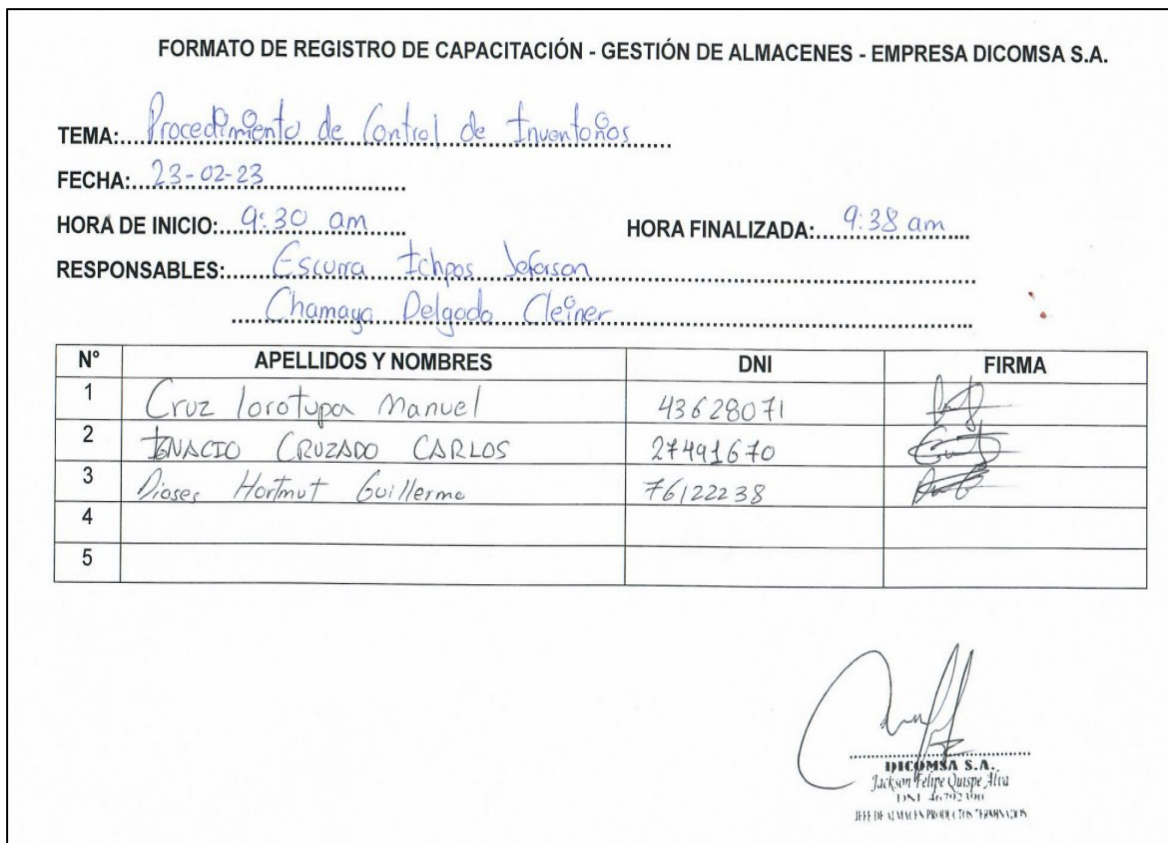 FORMATO DE REGISTRO DE CAPACITACIÓN - GESTIÓN DE ALMACENES - EMPRESA DICOMSA S.A.
TEMA: Procedimiento de Control de Inventarios
FECHA: 23-02-23
HORA DE INICIO: 9:30 am HORA FINALIZADA: 9:38 am
RESPONSABLES: Escurra Ichpas Jeferson
Chamaya Delgado Cleiner
N° APELLIDOS Y NOMBRES DNI FIRMA
1 Cruz lorotupa Manuel 43628071
2 IGNACIO CRUZADO CARLOS 27491670
3 Dioses Hartmut Guillermo 76122238
4
5
DICOMSA S.A.
Jackson Felipe Quispe Alva
DNI
JEFE DE ALMACEN PRODUCTOS TERMINADOS